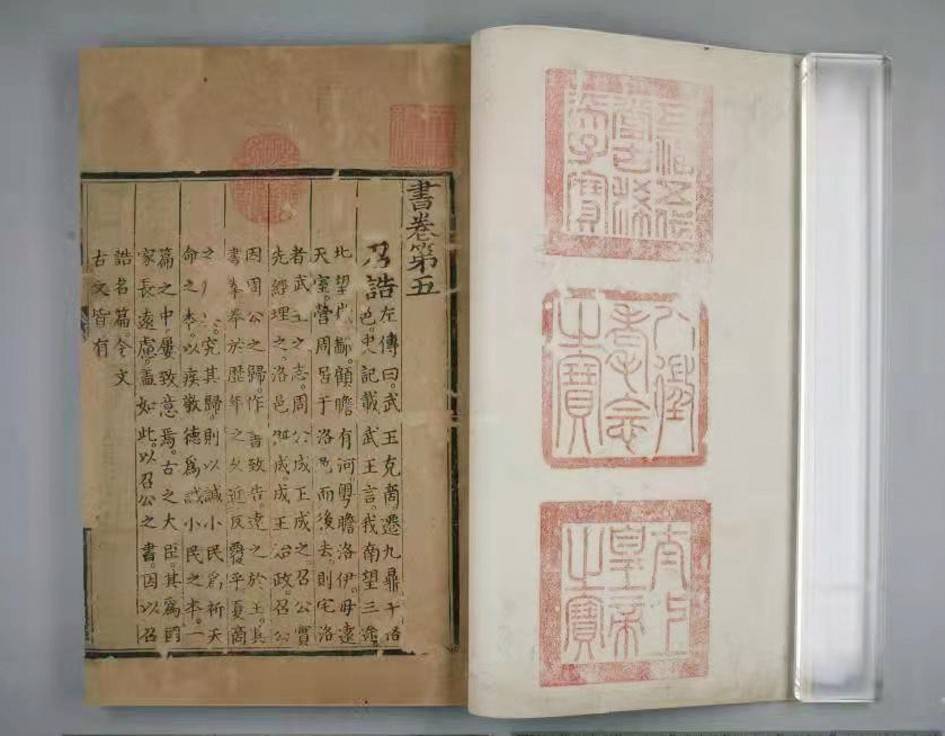 五福五代
堂古稀
天子寶
八徵
耄念
之寶
太上
皇帝
之寶
書卷第五
召誥
左傳曰。武王克商。遷九鼎于洛
邑。史記載武王言。我南望三塗。
北望鄙。顧瞻有河。粤瞻洛伊。毋遠
天室。營周居于洛邑而後去。則宅洛
者武王之志。周公成王成之。召公實
先經理之。洛邑既成。成王治政。召公
因周公之歸。作書致告。達之於王。其
書拳拳於歷年之久近反覆乎夏商
之究其歸。則以諴小民爲祈天
命之本。以疾敬德爲諴小民之本。一
篇之中。屢致意焉。古之大臣。其爲國
家長遠慮。蓋如此。以召公之書。因以召
誥名篇。今文
古文皆有